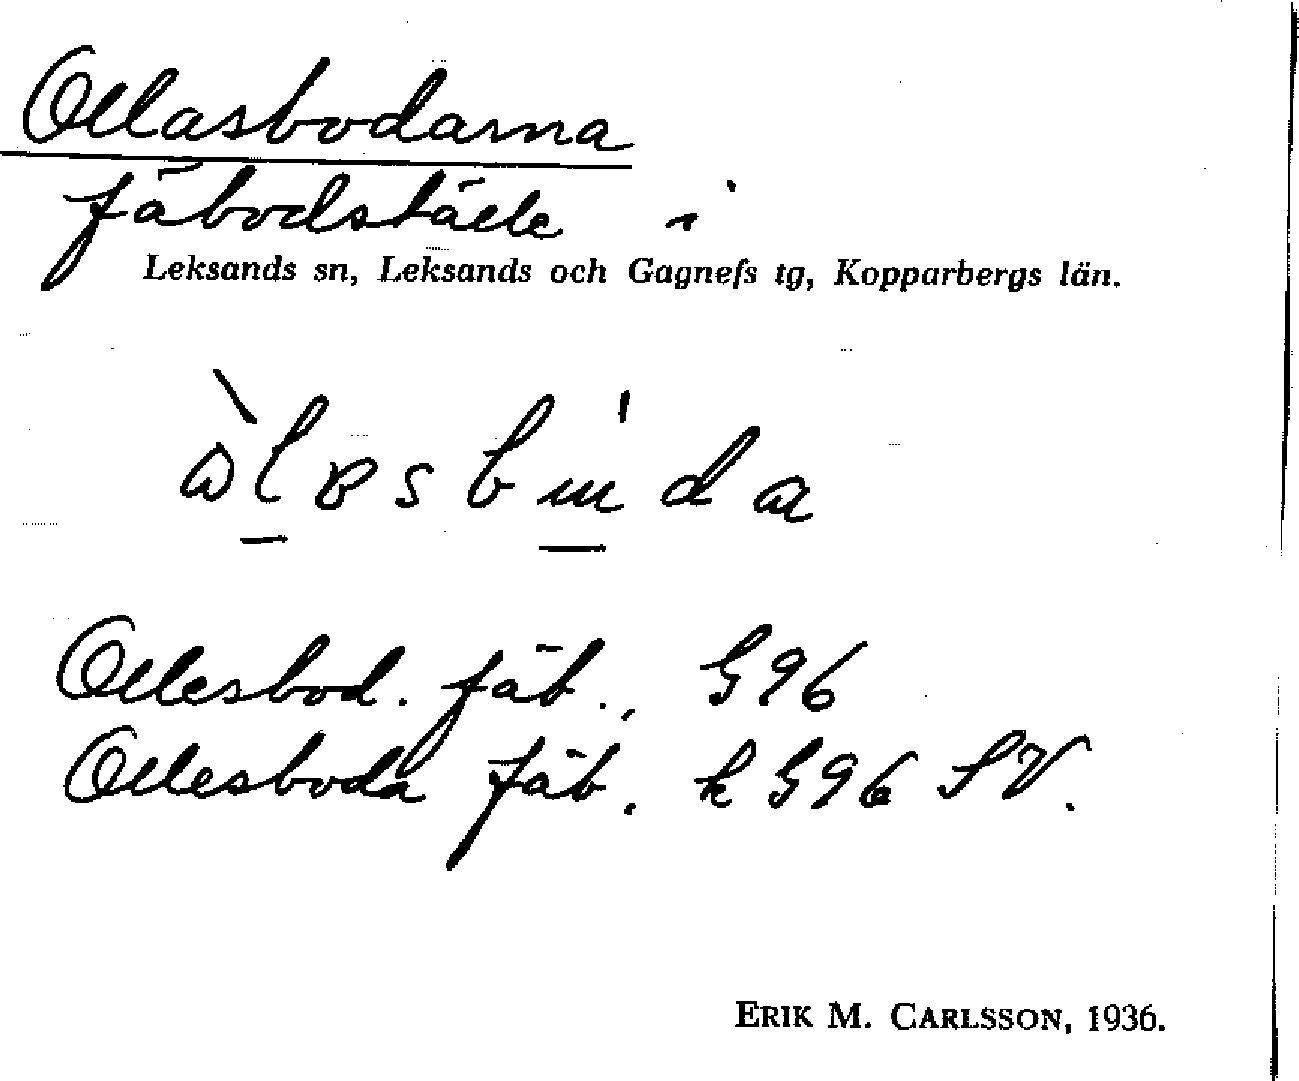 Ollasbodarna
fäbodställe i
Leksands sn, Leksands och Gagnefs tg, Kopparbergs län.
Ollesbod. fäb., G96
Ollesboda fäb. k G96 SV.
ERIK M. CARLSSON, 1936.